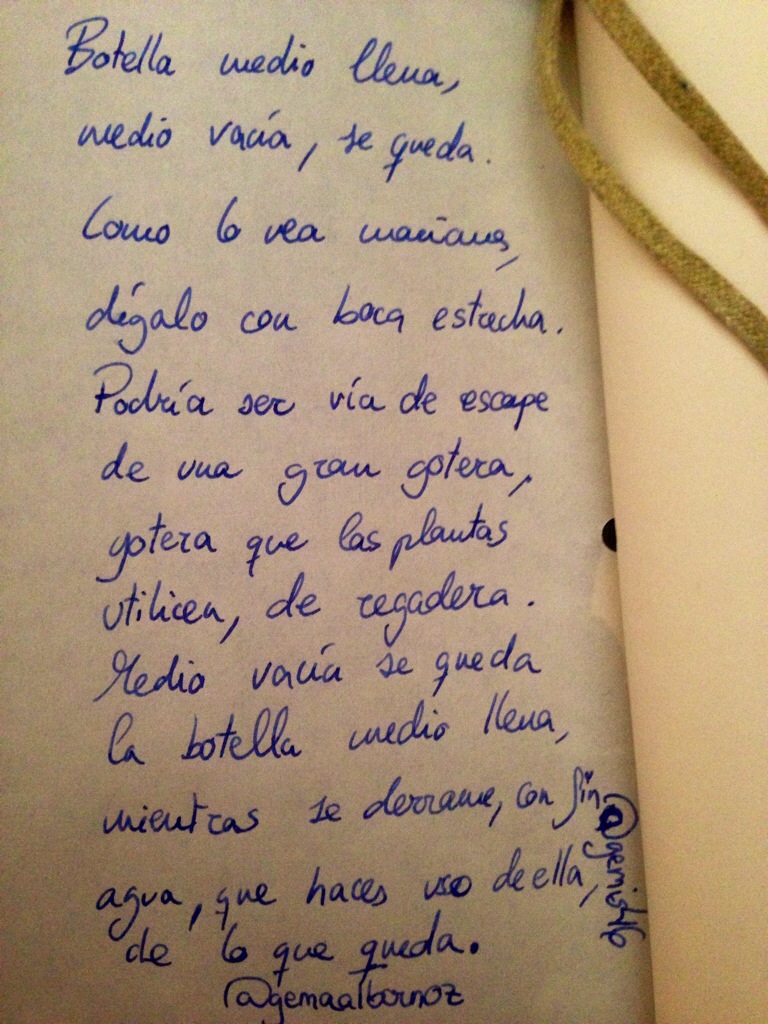 Botella medio llena,
medio vacía, se queda.
Como lo vea mañana,
dígalo con boca estrecha.
Podría ser vía de escape
de una gran gotera,
gotera que las plantas
utilicen, de regadera.
Medio vacía se queda
la botella medio llena,
mientras se derrame, con fin,
agua, que haces uso de ella,
de lo que queda.
@gemaalbornoz